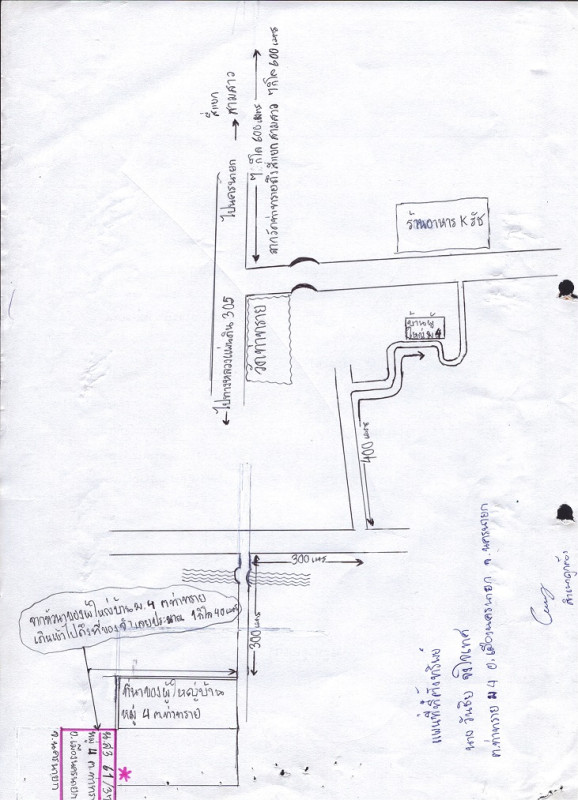 สี่แยก
สามสาว
ไปนครนายก
ไปทางหลวงแผ่นดิน 305
1 กิโล 600 เมตร
จากวัดท่าทรายถึงสี่แยกสามสาว 1 กิโล 600 เมตร
ร้านอาหาร K รัช
วัดท่าทราย
บ้านผู้
ใหญ่ ม 4
400 เมตร
300 เมตร
300 เมตร
จากที่นาของผู้ใหญ่บ้าน ม. 4 ต.ท่าทราย
เดินเข้าไปถึงที่ของจำเลยประมาณ 1 กิโล 40 เมตร
ที่นาของผู้ใหญ่บ้าน
หมู่ 4 ต.ท่าทราย
น.ส.3 61/37
หมู่ 4 ต.ท่าทราย
อ.เมืองนครนายก
จ.นครนายก
แผนที่ที่ตั้งทรัพย์
นาง วันชัย
ต.ท่าทราย ม 4 อ.เมืองนครนายก จ.นครนายก
สำเนาถูกต้อง